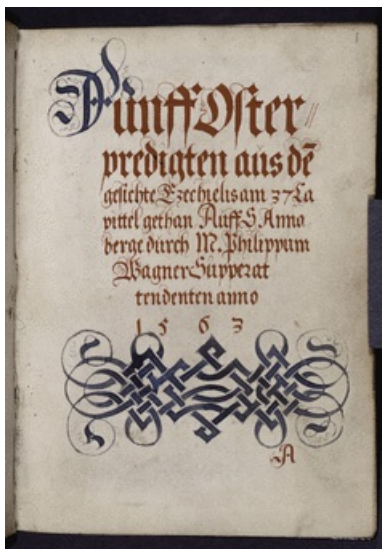 Fünff Oster//
predigten aus dē
gesichte Ezechielis am 37 Ca
pittel gethan Auff S. Anna
berge durch M. Philippum
Wagner Supperat
tendenten anno
1 5 6 3
A